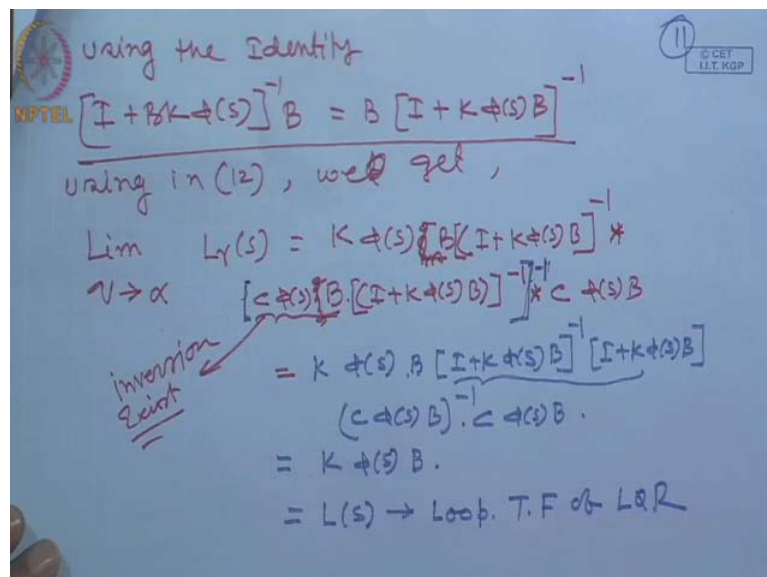 11
© CET
I.I.T. KGP
NPTEL
Using the Identity
[I + BKΦ(s)]⁻¹B = B [I + KΦ(s)B]⁻¹
using in (12), we get,
Lim Lr(s) = KΦ(s){B[(I+KΦ(s)B]⁻¹*
ν→α [CΦ(s){B.[(I+KΦ(s)B)]⁻¹]⁻¹* C Φ(s)B
inversion
Exist
= K Φ(s).B [I+KΦ(s)B]⁻¹[I+KΦ(s)B]
(CΦ(s)B)⁻¹.CΦ(s)B.
= K Φ(s) B.
= L(s) → Loop. T.F of LQR